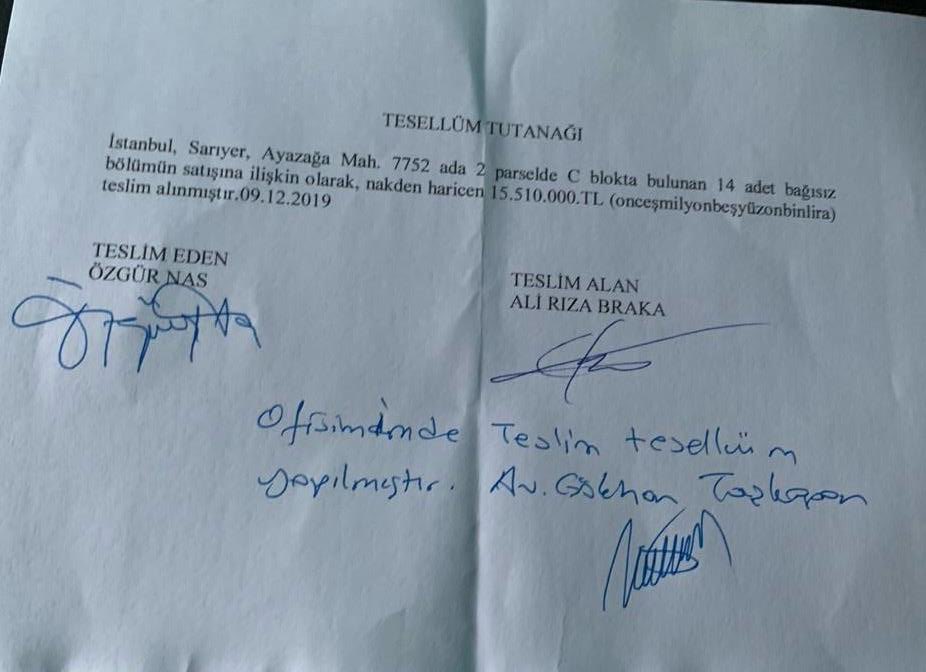 TESELLÜM TUTANAĞI
İstanbul, Sarıyer, Ayazağa Mah. 7752 ada 2 parselde C blokta bulunan 14 adet bağısız
bölümün satışına ilişkin olarak, nakden haricen 15.510.000.TL (onceşmilyonbeşyüzonbinlira)
teslim alınmıştır.09.12.2019
TESLİM EDEN
ÖZGÜR NAS
TESLİM ALAN
ALİ RIZA BRAKA
Teslim tesellüm
yapılmıştır. Av. Gökhan Taşkapan